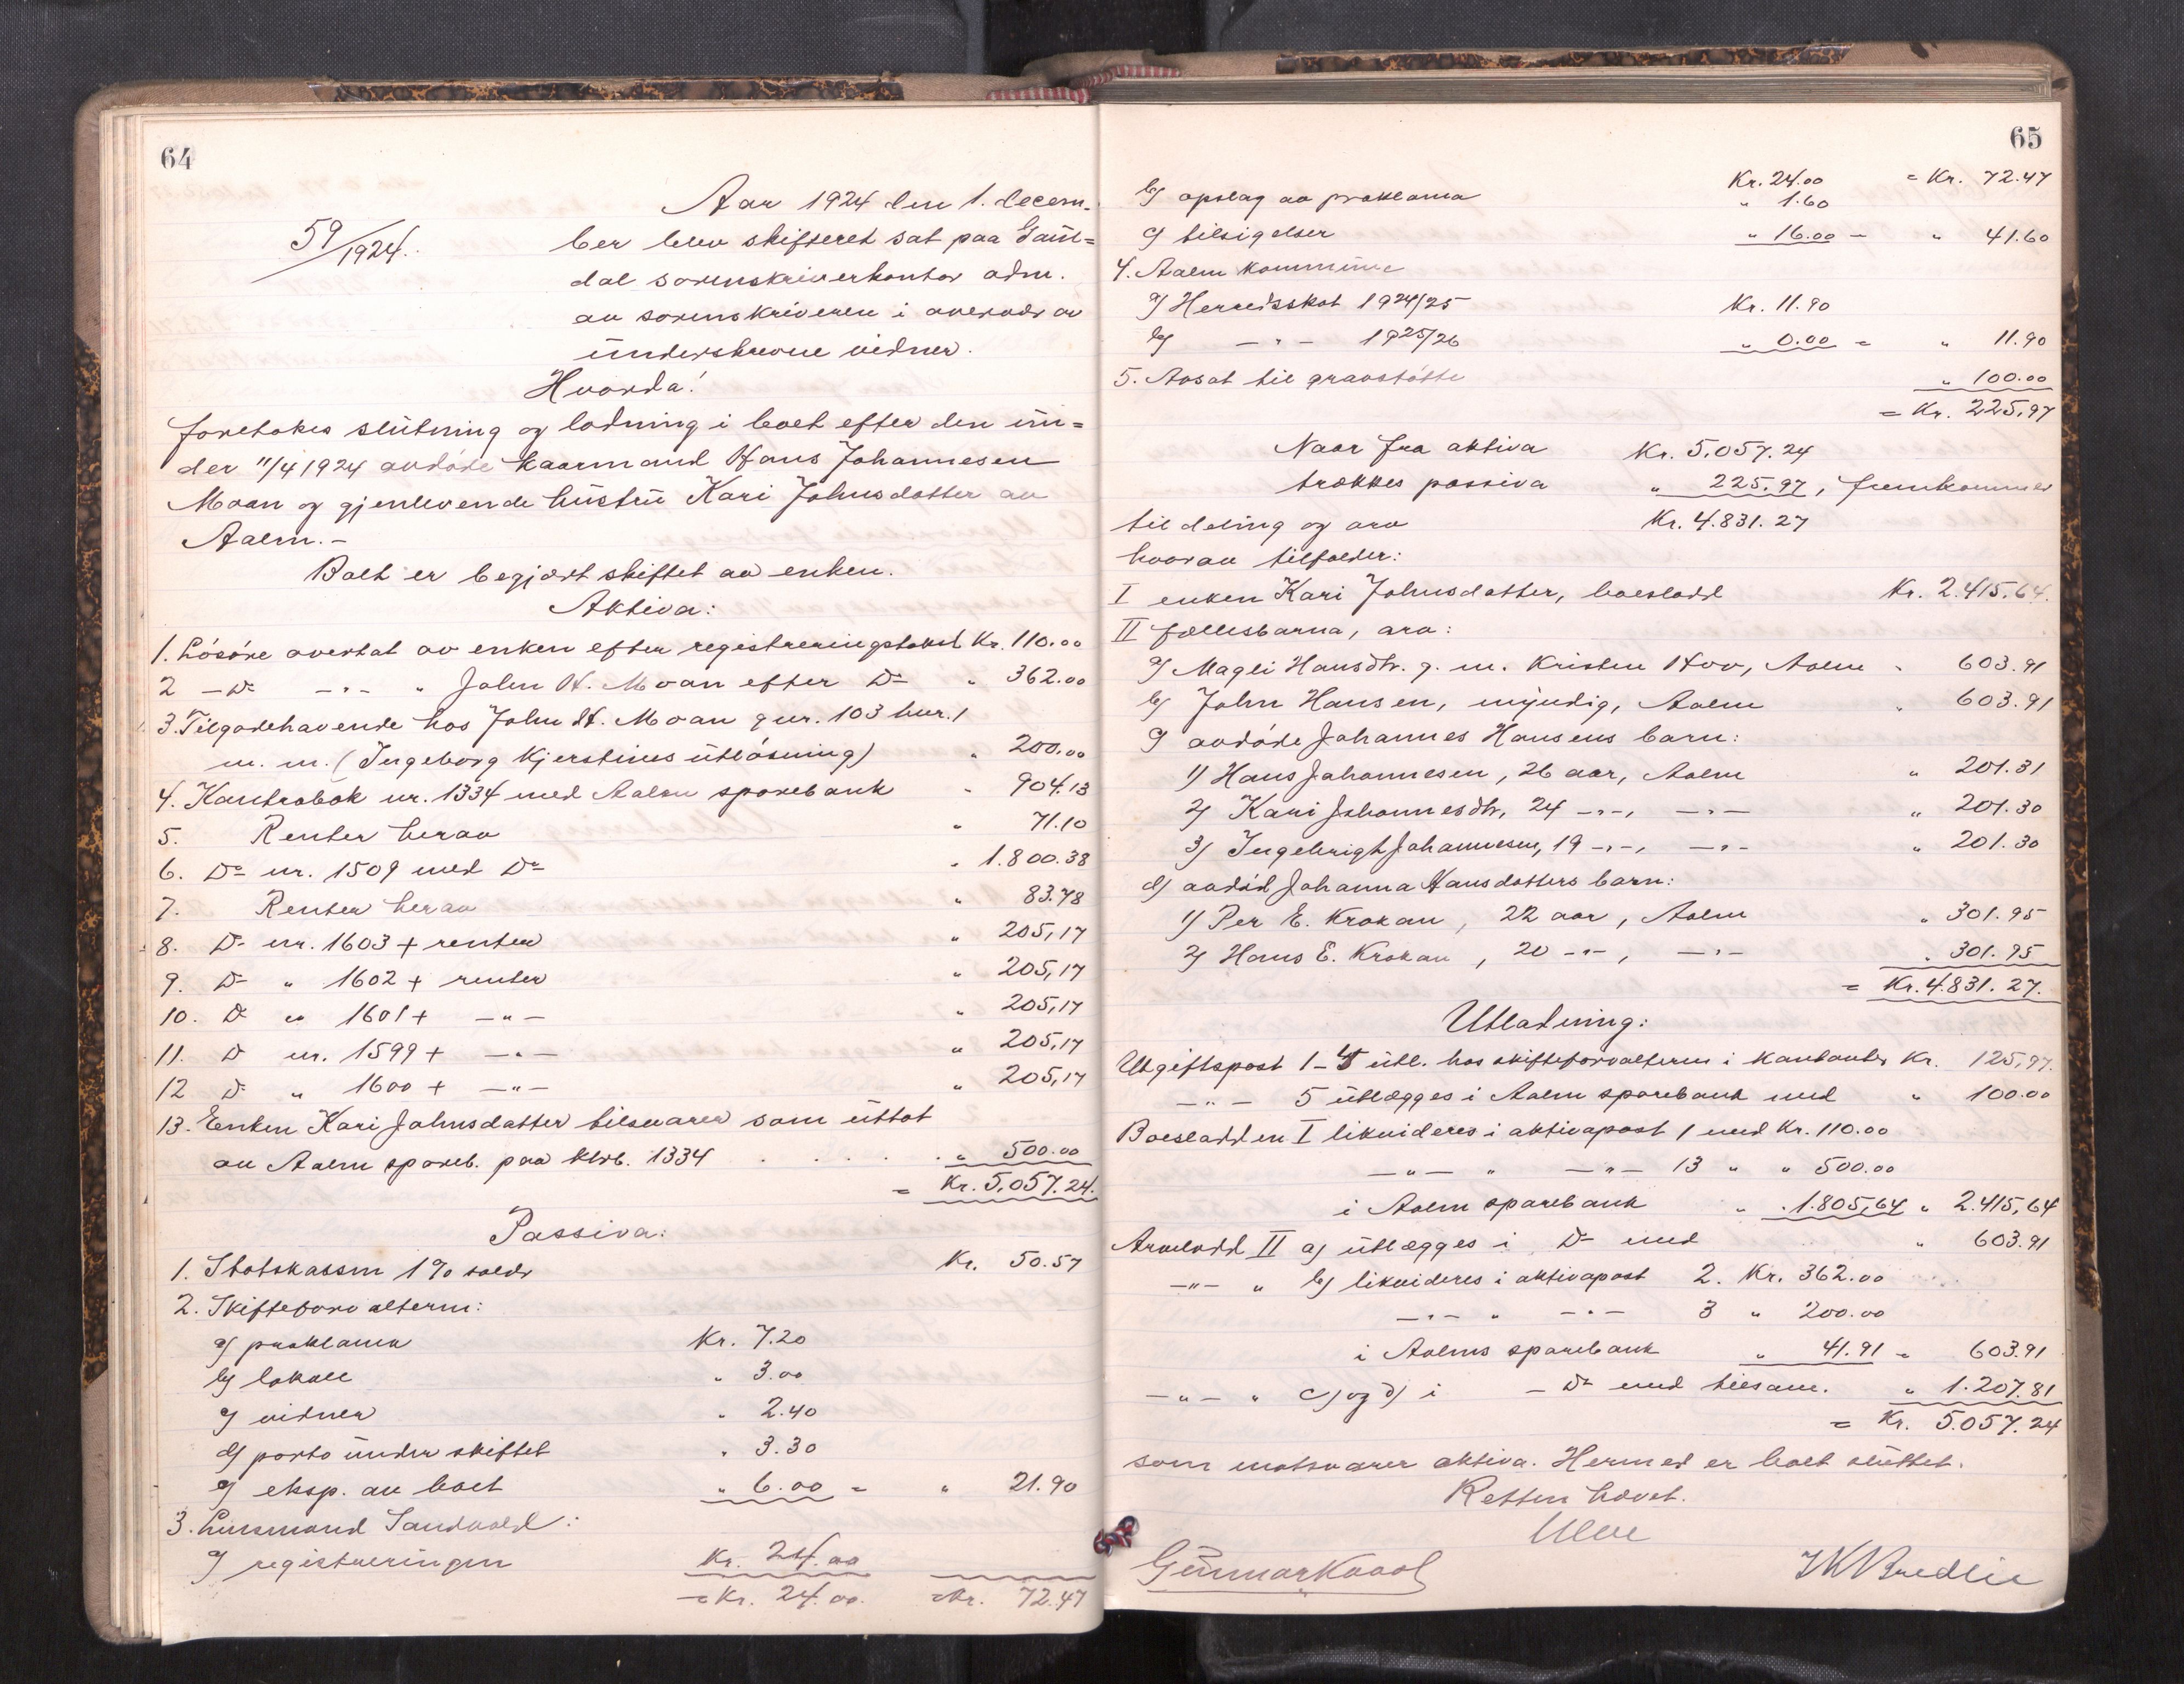 64
59/1924.
Aar 1924 den 1. decem-
ber blev skifteret sat paa Gaul=
dal sorenskriverkontor adm.
av sorenskriveren i overvær av
underskrevne vidner.
Hvorda!
foretokes slutning og lodning i boet efter den un=
der 11/4 1924 avdøde kaarmand Hans Johannesen
Moan og gjenlevende hustru Kari Johnsdatter av
Aalen.-
Boet er begjært skiftet av enken.
Aktiva:
1. Løsøre overtat av enken efter registreringstakst Kr. 110.00
2 -Do- -"- " John H. Moan efter Do " 362.00
3. Tilgodehavende hos John H. Moan gnr. 103 bnr. 1
m. m. (Ingeborg Kjerstines utløsning) " 200.00
4. Kontrabok nr. 1334 med Aalen sparebank " 904.13
5. Renter herav " 71.10
6. Do nr. 1509 med Do " 1.800.38
7. Renter herav " 83.78
8. Do nr. 1603 + renter " 205,17
9. Do " 1602 + renter " 205,17
10. Do " 1601 + -"- " 205,17
11. Do nr. 1599 + -"- " 205,17
12 Do " 1600 + -"- " 205,17
13. Enken Kari Johnsdatter tilsvarer som uttat
av Aalen spareb. paa ktrb. 1334 . . . . . " 500.00
= Kr. 5.057.24.
Passiva:
1. Statskassen 1 % soldo Kr. 50.57
2. Skifteforvalteren:
a) proklama Kr. 7.20
b) lokale " 3.00
c) vidner " 2.40
d) porto under skiftet " 3.30
e) eksp. av boet " 6.00 = " 21.90
3. Lensmand Sandvold:
a) registreringen Kr. 24.00
= Kr. 24.00. = Kr. 72.47
65
Kr. 24.00 = Kr. 72.47
b) opslag av proklama " 1.60
c) tilsigelser " 16.00 = " 41.60
4. Aalen kommune
a) Herredsskat 1924/25 Kr. 11.90
b) -"- 1925/26 " 0.00 = " 11.90
5. Avsat til gravstøtte " 100.00
= Kr. 225,97
Naar fra aktiva Kr. 5.057.24
trækkes passiva " 225.97, fremkommer
til deling og arv Kr. 4.831.27
hvorav tilfalder:
I enken Kari Johnsdatter, boeslodd Kr. 2.415.64.
II fællesbarna, arv:
a) Magli Hansdtr. g. m. Kristen Hov, Aalen " 603.91
b) John Hansen, myndig, Aalen " 603.91
c) avdøde Johannes Hansens barn:
1) Hans Johannesen, 26 aar, Aalen " 201.31
2) Kari Johannesdtr, 24 -"-, -"- " 201.30
3) Ingebrigt Johannesen, 19 -"-, -"- " 201.30
d) avdød Johanna Hansdatters barn:
1) Per E. Krokan, 22 aar, Aalen " 301.95
2) Hans E. Krokan, 20 -"-, -"- " 301.95
= Kr. 4.831.27.
Utlodning:
Utgiftspost 1-4 utl. hos skifteforvalteren i kontanter Kr. 125,97.
-"- 5 utlægges i Aalen sparebank med " 100.00
Boeslodden I likvideres i aktivapost 1 med Kr. 110.00
-"- " -"- 13 " " 500.00
i Aalen sparebank " 1.805,64 " 2.415,64
Arvelodd II a) utlægges i Do med " 603.91
-"- " b) likvideres i aktivapost 2. Kr. 362.00
-"- " -"- 3 " 200.00
i Aalens sparebank " 41.91 = 603.91
-"- " c) og d) i -Do- med tilsam. " 1.207.81
= Kr. 5.057.24
som motsvarer aktiva. Hermed er boet sluttet.
Retten hævet.
Gunnar Kvaal